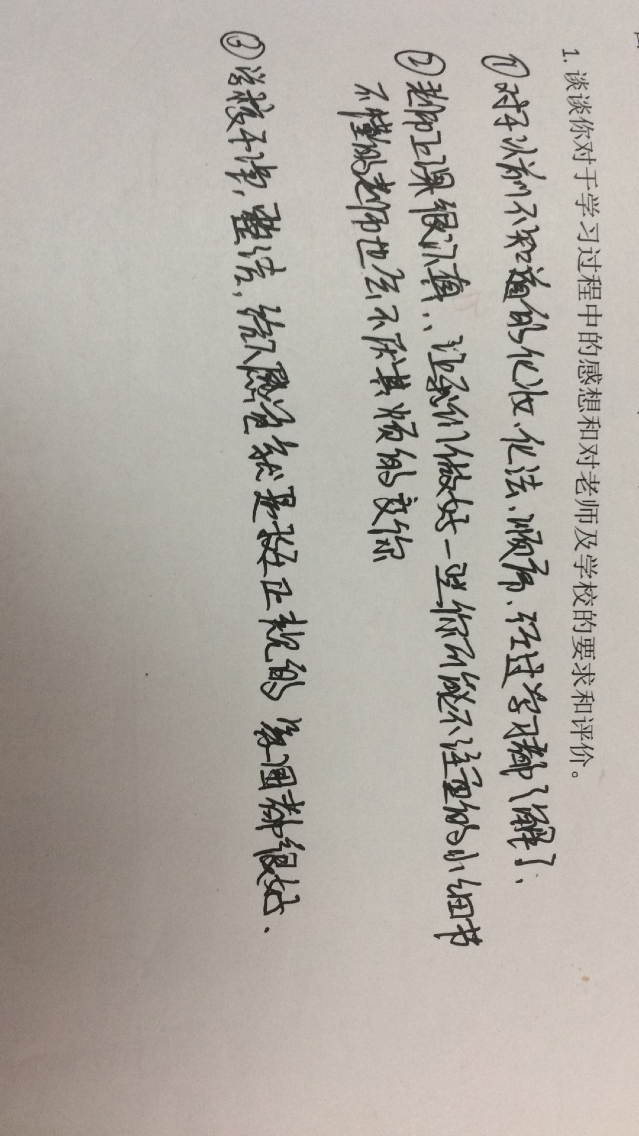 1. 谈谈你对于学习过程中的感想和对老师及学校的要求和评价。
①对于以前不知道的化妆、化法、顺序、经过学习都了解了、
②老师上课很认真、让我们做好一些你可能不注重的小细节
不懂的老师也会不厌其烦的交你
③学校干净,整洁,给人感觉就是挺正规的 氛围都很好.